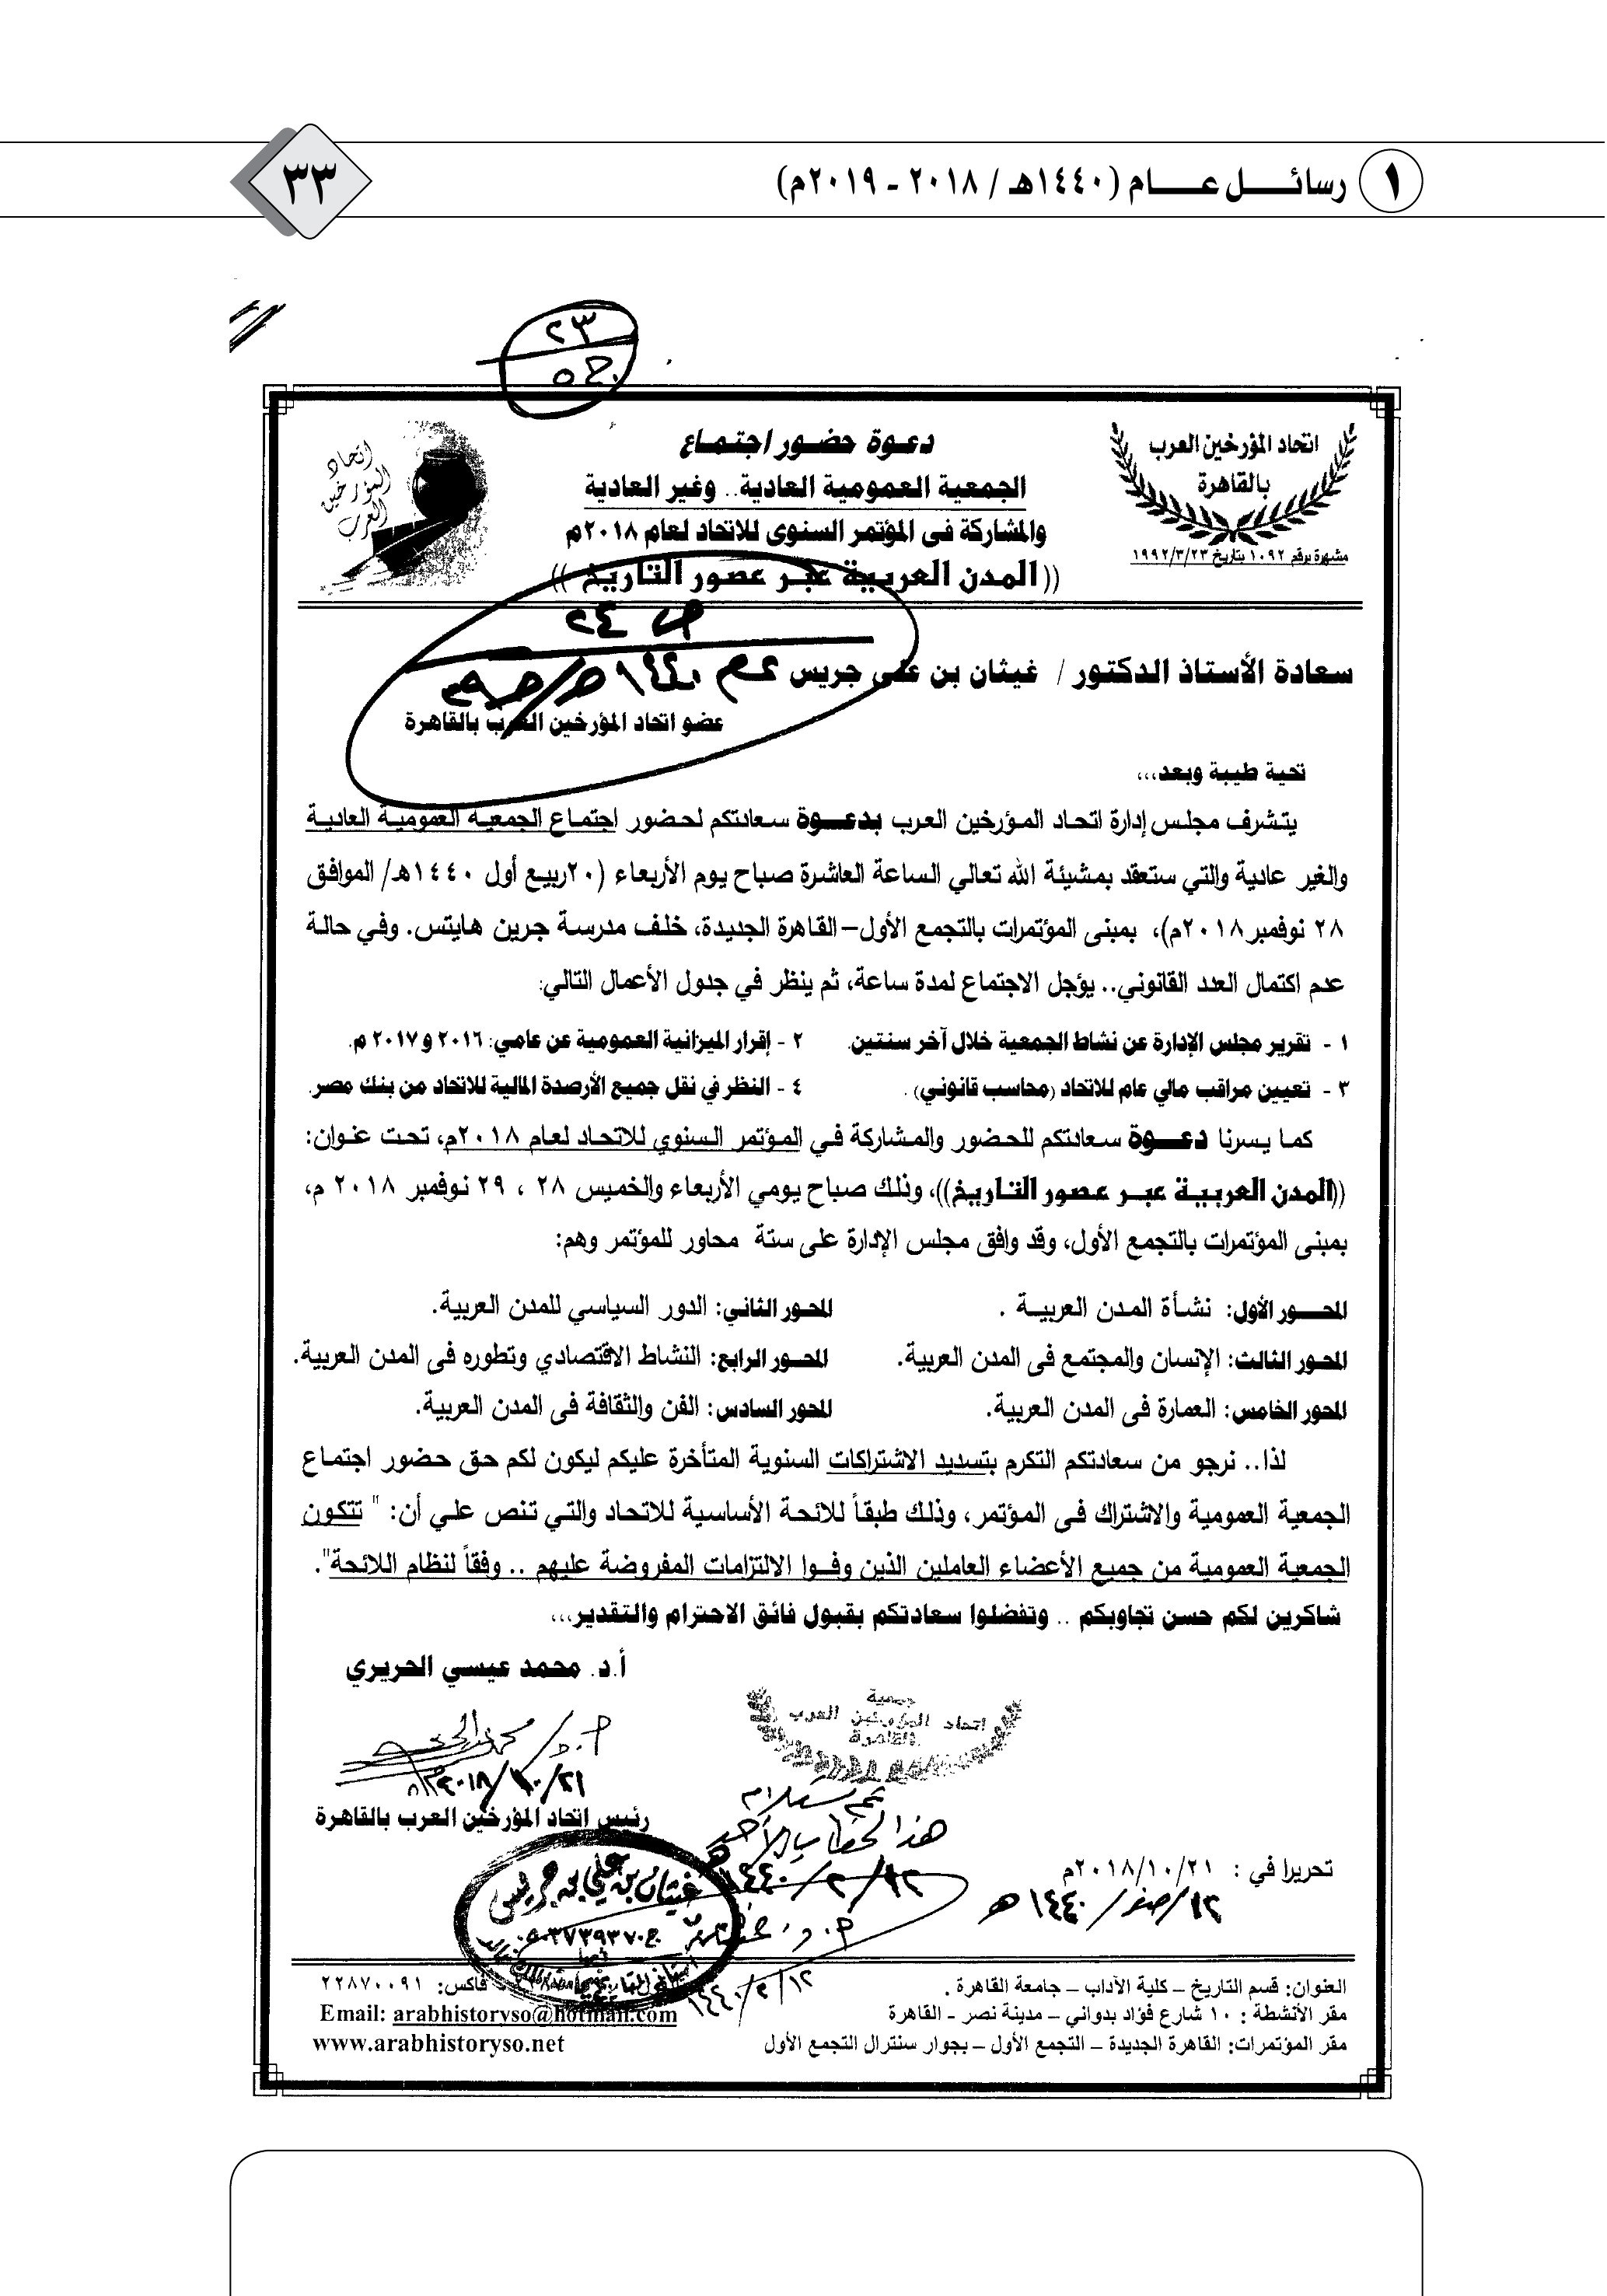 ١ رسائل عام (١٤٤٠هـ / ٢٠١٨ - ٢٠١٩م)
٣٣
٢٣
اتحاد المؤرخين العرب
بالقاهرة
مشهرة برقم ١٠٩٢ بتاريخ ١٩٩٢/٣/٢٣
دعوة حضور اجتماع
الجمعية العمومية العادية.. وغير العادية
والمشاركة فى المؤتمر السنوى للاتحاد لعام ٢٠١٨م
((المدن العربية عبر عصور التاريخ))
اتحاد
المؤرخين
العرب
سعادة الأستاذ الدكتور / غيثان بن على جريس
عضو اتحاد المؤرخين العرب بالقاهرة
تحية طيبة وبعد،،،
يتشرف مجلس إدارة اتحاد المؤرخين العرب بدعوة سعادتكم لحضور اجتماع الجمعية العمومية العادية
والغير عادية والتي ستعقد بمشيئة الله تعالي الساعة العاشرة صباح يوم الأربعاء (٢٠ربيع أول ١٤٤٠هـ/ الموافق
٢٨ نوفمبر٢٠١٨م)، بمبنى المؤتمرات بالتجمع الأول–القاهرة الجديدة، خلف مدرسة جرين هايتس. وفي حالة
عدم اكتمال العدد القانوني.. يؤجل الاجتماع لمدة ساعة، ثم ينظر في جدول الأعمال التالي:
١ - تقرير مجلس الإدارة عن نشاط الجمعية خلال آخر سنتين. ٢ - إقرار الميزانية العمومية عن عامي: ٢٠١٦ و٢٠١٧ م.
٣ - تعيين مراقب مالي عام للاتحاد (محاسب قانوني) . ٤ - النظر في نقل جميع الأرصدة المالية للاتحاد من بنك مصر.
كما يسرنا دعوة سعادتكم للحضور والمشاركة في المؤتمر السنوي للاتحاد لعام ٢٠١٨م، تحت عنوان:
((المدن العربية عبر عصور التاريخ))، وذلك صباح يومي الأربعاء والخميس ٢٨ ، ٢٩ نوفمبر ٢٠١٨ م،
بمبنى المؤتمرات بالتجمع الأول، وقد وافق مجلس الإدارة على ستة محاور للمؤتمر وهم:
المحور الأول: نشأة المدن العربية . المحور الثاني: الدور السياسي للمدن العربية.
المحور الثالث: الإنسان والمجتمع فى المدن العربية. المحور الرابع: النشاط الاقتصادي وتطوره فى المدن العربية.
المحور الخامس: العمارة فى المدن العربية. المحور السادس: الفن والثقافة فى المدن العربية.
لذا.. نرجو من سعادتكم التكرم بتسديد الاشتراكات السنوية المتأخرة عليكم ليكون لكم حق حضور اجتماع
الجمعية العمومية والاشتراك فى المؤتمر، وذلك طبقاً للائحة الأساسية للاتحاد والتي تنص علي أن: " تتكون
الجمعية العمومية من جميع الأعضاء العاملين الذين وفوا الالتزامات المفروضة عليهم .. وفقاً لنظام اللائحة".
شاكرين لكم حسن تجاوبكم .. وتفضلوا سعادتكم بقبول فائق الاحترام والتقدير،،،
أ.د. محمد عيسي الحريري
جمعية
اتحاد المؤرخين العرب
القاهرة
٢٠١٨/١٠/٢١
رئيس اتحاد المؤرخين العرب بالقاهرة
تم استلام
هذا الخطاب الأحد
١٤٤٠/٢/١٢هـ
تحريرا في : ٢٠١٨/١٠/٢١م
١٢/صفر/١٤٤٠هـ
غيثان بن علي بن جريس
١٤٤٠/٢/١٢
العنوان: قسم التاريخ – كلية الآداب – جامعة القاهرة .
فاكس: ٢٢٨٧٠٠٩١
مقر الأنشطة : ١٠ شارع فؤاد بدواني – مدينة نصر - القاهرة
Email: arabhistoryso@hotmail.com
مقر المؤتمرات: القاهرة الجديدة – التجمع الأول – بجوار سنترال التجمع الأول
www.arabhistoryso.net